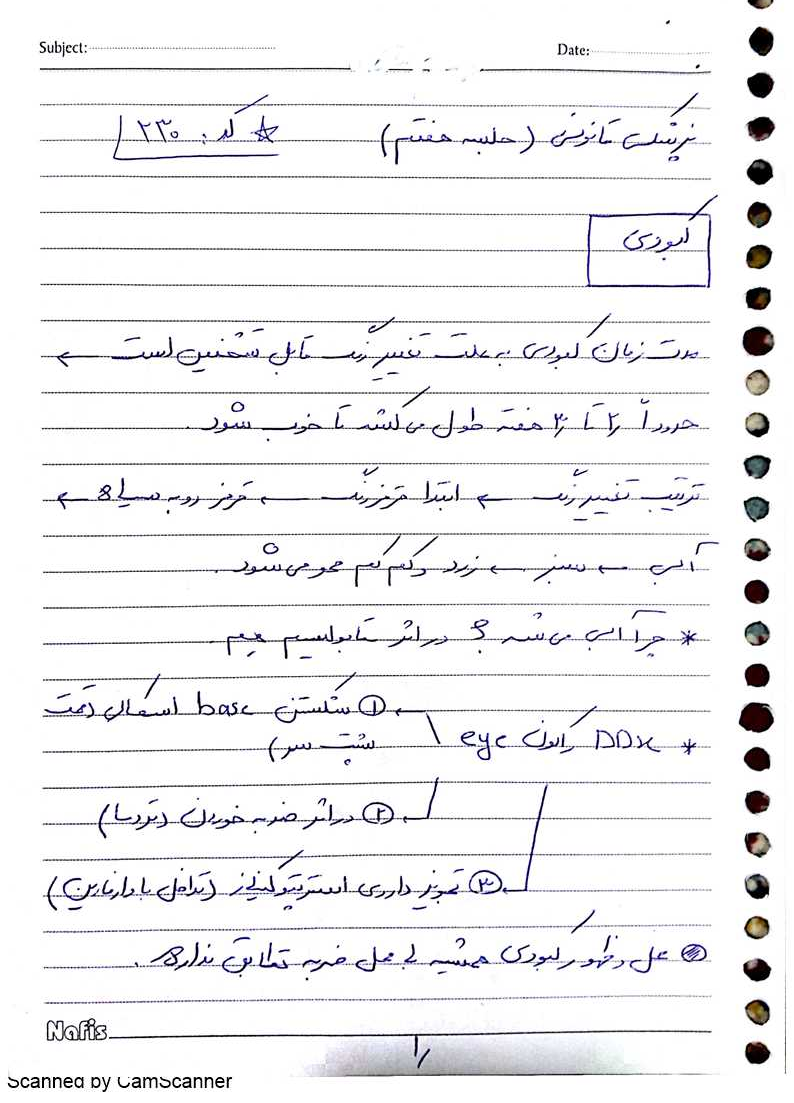 Subject:
Date:
پزشکی قانونی (جلسه هفتم) * کد: ۲۳۰
کبودی
مدت زمان کبودی به علت تغییر رنگ قابل تشخیص است ←
حدوداً ۲ تا ۳ هفته طول می‌کشد تا خوب شود.
ترتیب تغییر رنگ ← ابتدا قرمز رنگ ← قرمز رو به سیاه ←
آبی ← سبز ← زرد و کم کم محو می‌شود.
* چرا آبی می‌شه؟ در اثر متابولیسم هِم.
① شکستن base اسکال (قسمت
* DDX راکون eye
پشت سر)
② در اثر ضربه خوردن (تروما)
③ تجویز داروی استرپتوکیناز (تداخل با وارفارین)
محل ظهور کبودی همیشه با محل ضربه تطابق نداره.
Nafis
۱
Scanned by CamScanner